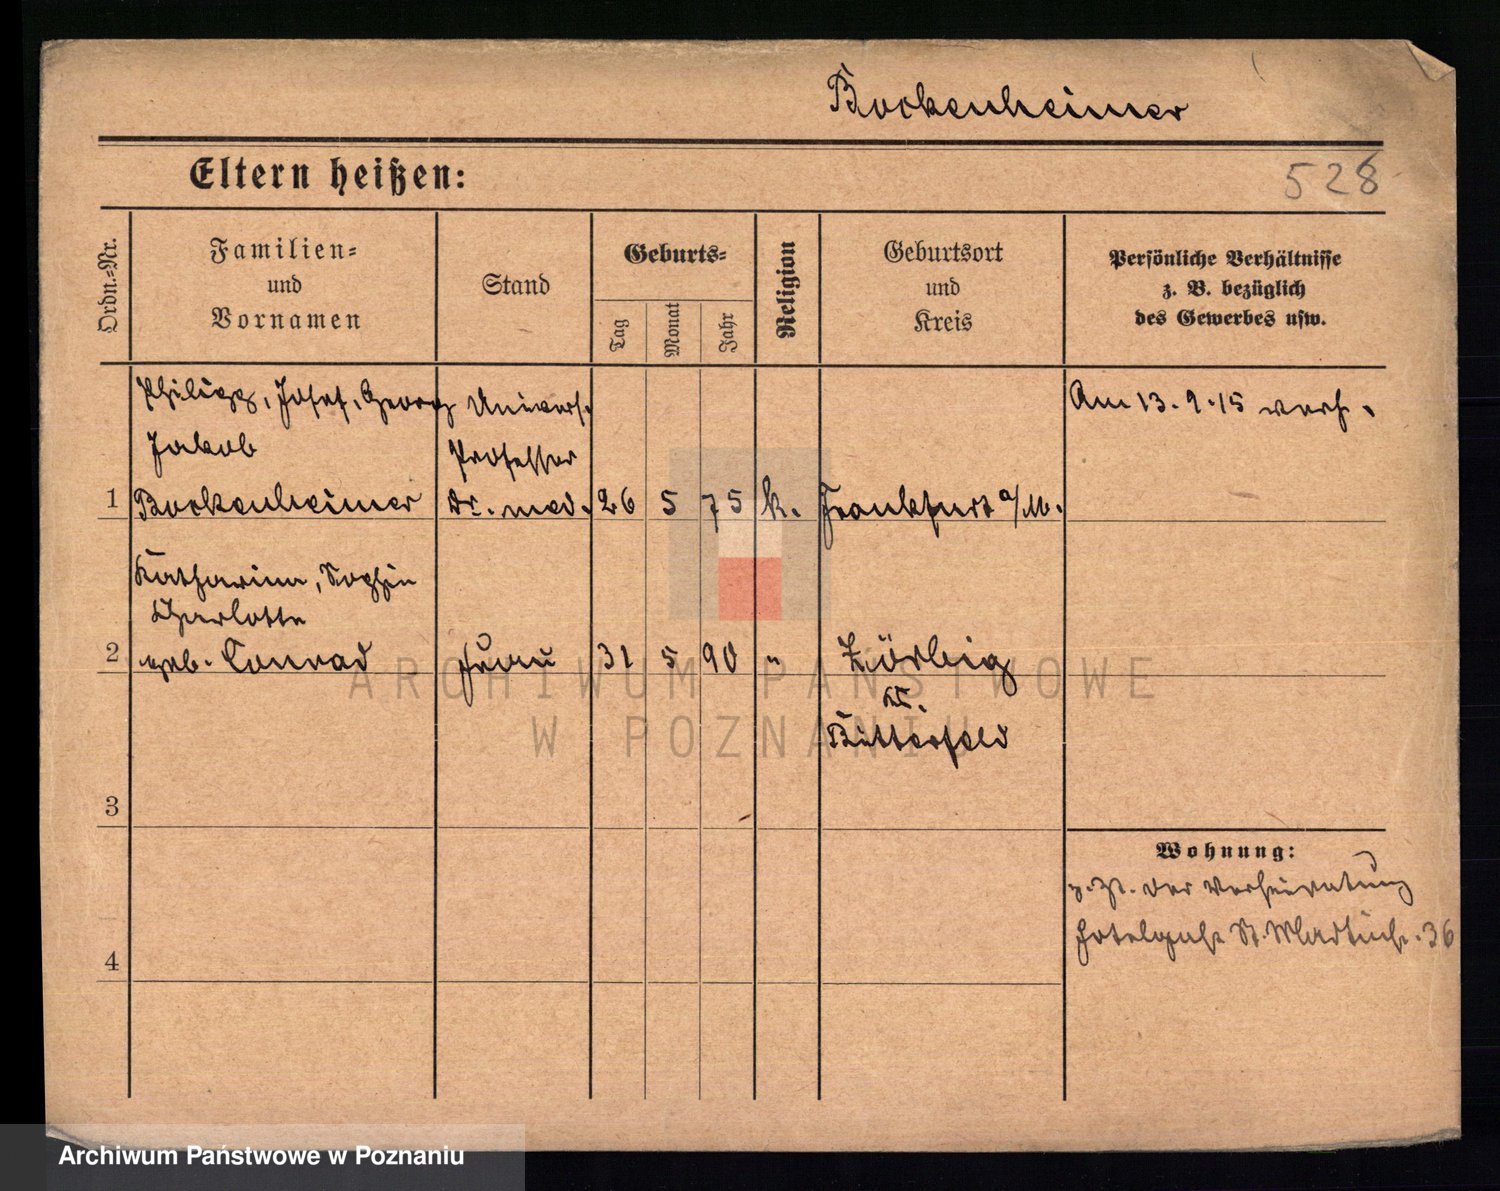 Bockenheimer
Eltern heißen:
528
Ordn.-Nr.
Familien-
und
Vornamen
Stand
Geburts-
Tag
Monat
Jahr
Religion
Geburtsort
und
Kreis
Persönliche Verhältnisse
z. B. bezüglich
des Gewerbes usw.
Philipp, Josef, Georg
Jakob
1 Bockenheimer
Univers.
Professor
Dr. med.
26 5 75 k. Frankfurt a/M.
Am 13.9.15 verh.
Katharina, Sophie
Charlotte
2 geb. Conrad Frau 31 5 90 " Zörbig
Kr.
Bitterfeld
3
Wohnung:
z. Zt. der Verheiratung
St. Martinstr. 36
4
ARCHIWUM PAŃSTWOWE
W POZNANIU
Archiwum Państwowe w Poznaniu